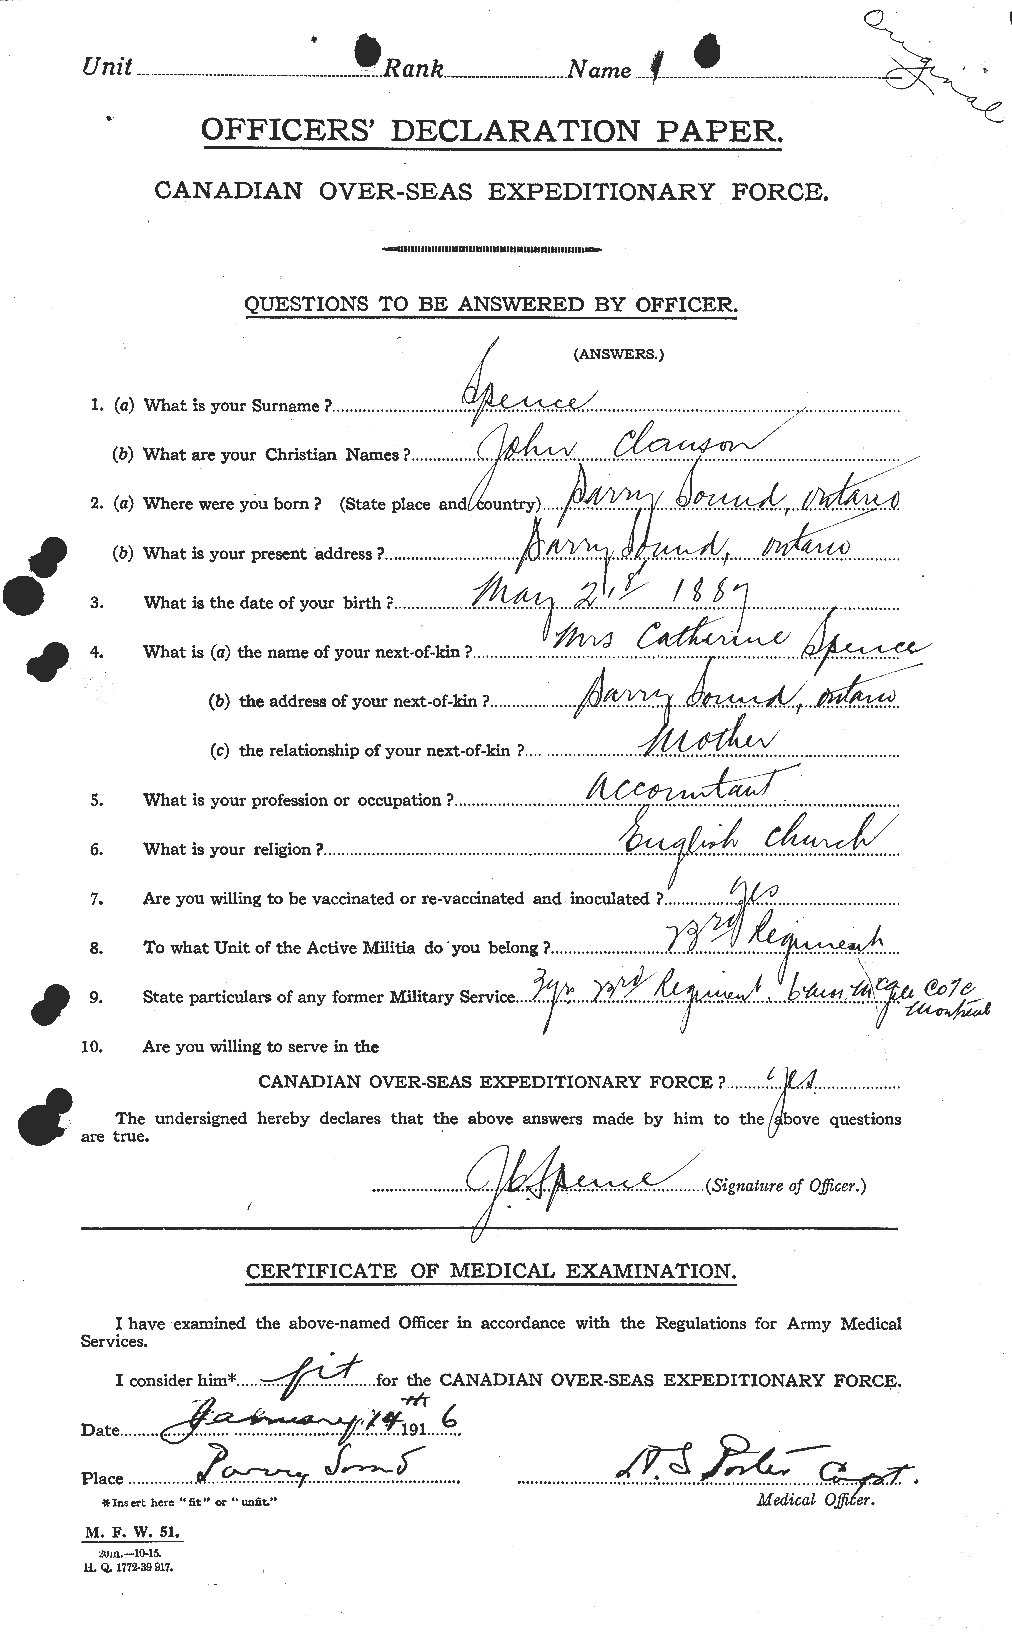 Original
Unit Rank Name
OFFICERS' DECLARATION PAPER.
CANADIAN OVER-SEAS EXPEDITIONARY FORCE.
QUESTIONS TO BE ANSWERED BY OFFICER.
(ANSWERS.)
1. (a) What is your Surname? Spence
(b) What are your Christian Names? John Clauson
2. (a) Where were you born? (State place and country) Parry Sound, Ontario
(b) What is your present address? Parry Sound, Ontario
3. What is the date of your birth? May 1887
4. What is (a) the name of your next-of-kin? Mrs Catherine Spence
(b) the address of your next-of-kin? Parry Sound, Ontario
(c) the relationship of your next-of-kin? Mother
5. What is your profession or occupation? Accountant
6. What is your religion? English Church
7. Are you willing to be vaccinated or re-vaccinated and inoculated? Yes
8. To what Unit of the Active Militia do you belong? 23rd Regiment
9. State particulars of any former Military Service. 3yrs 23rd Regiment. McGill COTC
Montreal
10. Are you willing to serve in the
CANADIAN OVER-SEAS EXPEDITIONARY FORCE? Yes.
The undersigned hereby declares that the above answers made by him to the above questions
are true.
J.C. Spence (Signature of Officer.)
CERTIFICATE OF MEDICAL EXAMINATION.
I have examined the above-named Officer in accordance with the Regulations for Army Medical
Services.
I consider him* fit for the CANADIAN OVER-SEAS EXPEDITIONARY FORCE.
Date January 14th 1916
Place Parry Sound Capt.
*Insert here "fit" or "unfit." Medical Officer.
M. F. W. 51.
20m.—10-15.
H. Q. 1772-39 917.